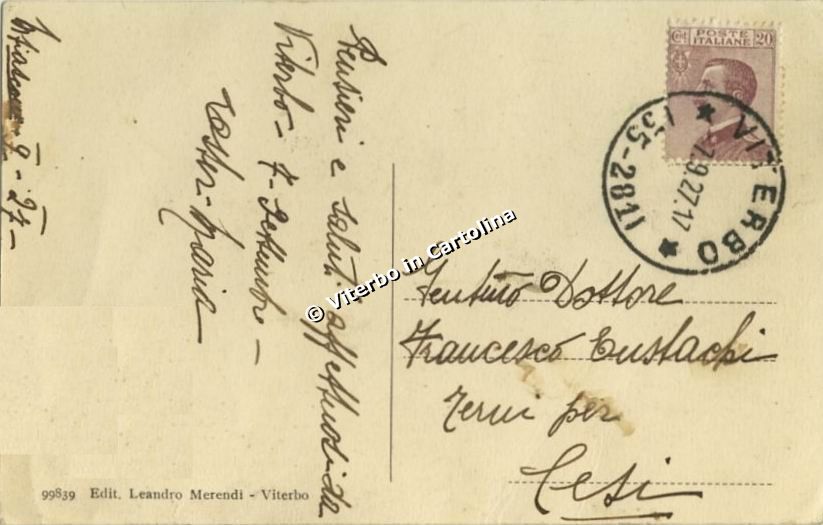 Pensieri e saluti affettuosi da
Viterbo - 7 - Settembre -
Maria
9 - 27 -
POSTE
ITALIANE
Cent 20
VITERBO
135-281
7.9.27.17
Dottore
Francesco Eustachi
Terni per
Cesi
© Viterbo in Cartolina
99839 Edit. Leandro Merendi - Viterbo